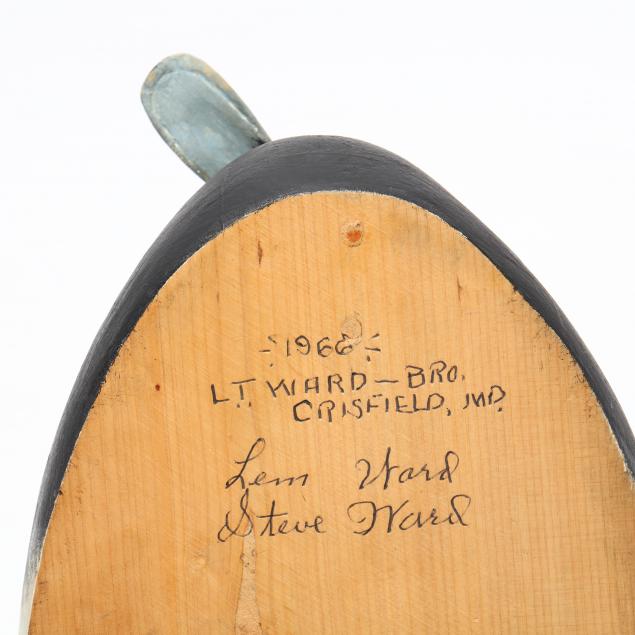 -:1966:-
L.T. WARD-BRO.
CRISFIELD, MD.
Lem Ward
Steve Ward